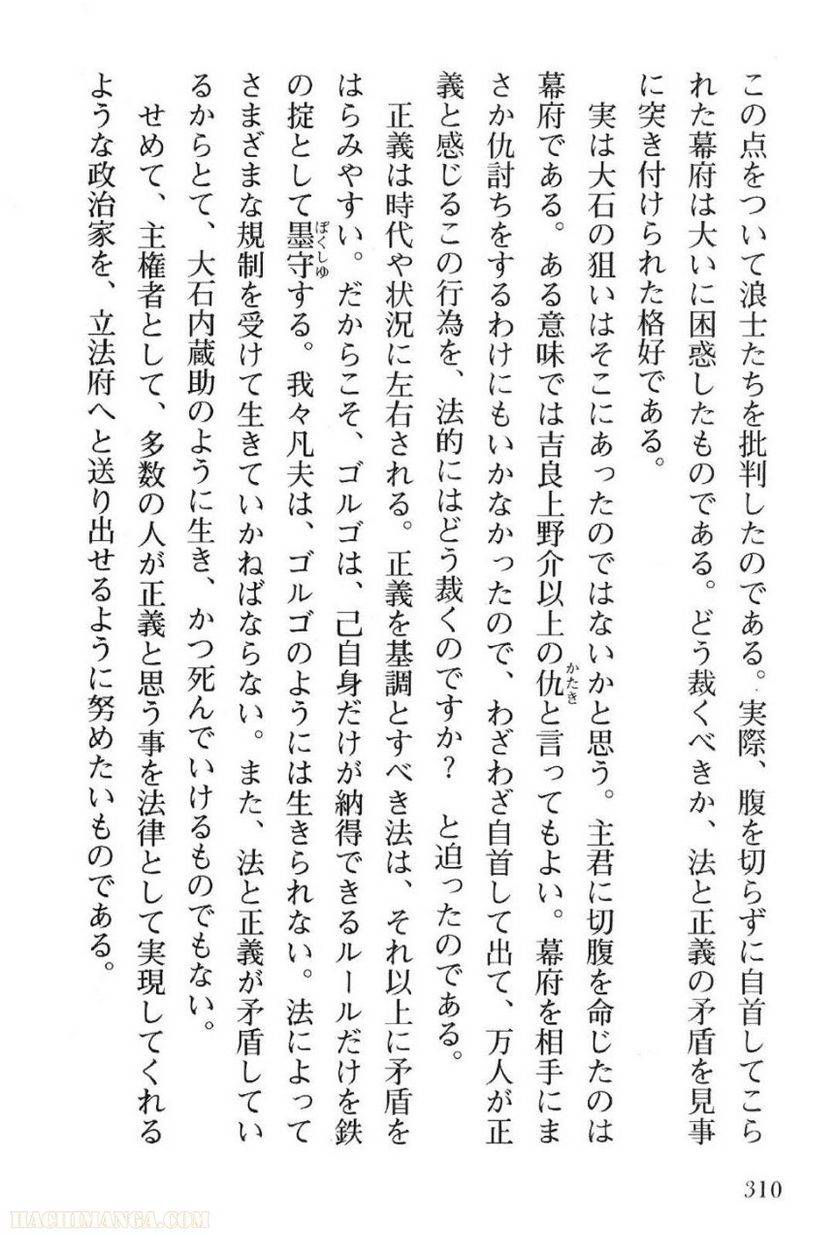 この点をついて浪士たちを批判したのである。実際、腹を切らずに自首してこら
れた幕府は大いに困惑したものである。どう裁くべきか、法と正義の矛盾を見事
に突き付けられた格好である。
実は大石の狙いはそこにあったのではないかと思う。主君に切腹を命じたのは
幕府である。ある意味では吉良上野介以上の仇と言ってもよい。幕府を相手にま
かたき
さか仇討ちをするわけにもいかなかったので、わざわざ自首して出て、万人が正
義と感じるこの行為を、法的にはどう裁くのですか？　と迫ったのである。
正義は時代や状況に左右される。正義を基調とすべき法は、それ以上に矛盾を
はらみやすい。だからこそ、ゴルゴは、己自身だけが納得できるルールだけを鉄
の掟として墨守する。我々凡夫は、ゴルゴのようには生きられない。法によって
ぼくしゆ
さまざまな規制を受けて生きていかねばならない。また、法と正義が矛盾してい
るからとて、大石内蔵助のように生き、かつ死んでいけるものでもない。
せめて、主権者として、多数の人が正義と思う事を法律として実現してくれる
ような政治家を、立法府へと送り出せるように努めたいものである。
310
HACHIMANGA.COM